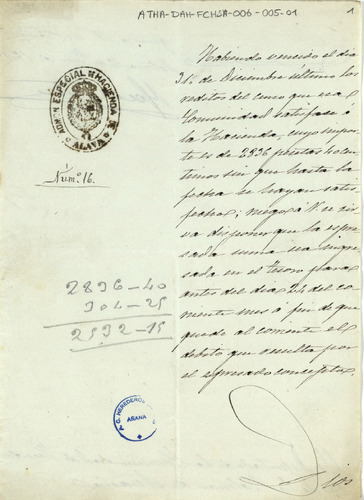 ATHA-DAH-FCHSA-006-005-01
1
ADMON ESPECIAL DE HACIENDA DE ALAVA
Núm.º 16.
Habiendo vencido el dia
31 de Diciembre último los
reditos del censo que esa
Comunidad satisface á
la Hacienda, cuyo impor-
te es de 2836 pesetas
sin que hasta la
fecha se hayan satis-
fecho; ruego á V. se sir-
va disponer que la espre-
sada suma sea ingre-
sada en el Tesoro
antes del dia 24 del co-
rriente mes á fin de que
quede al corriente el
debito que resulta por
el espresado concepto.
Dios
2836-40
304-25
2532-15
ARANA